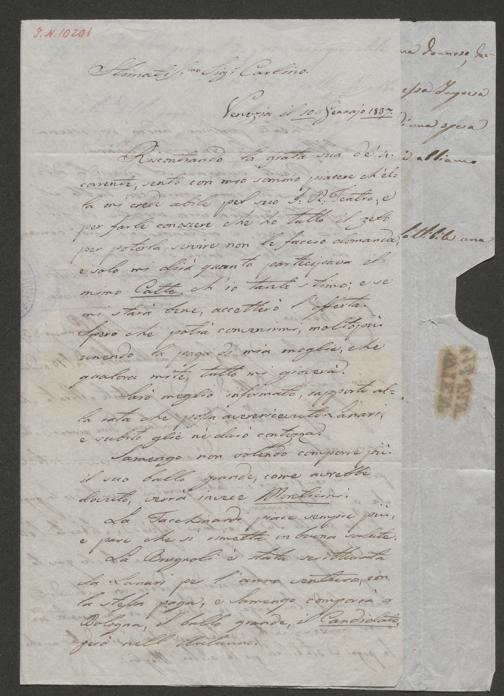 J.N. 10291
Stimatis.mo Sig.r Carlino.
Venezia il 10 Gennajo 1837
Riscontrando la grata sua de' 5
corrente, sento con mio sommo piacere ch'ella
mi crede abile pel suo I. R. Teatro, e
per farle conoscere che ho tutto il zelo
per poterla servire non le faccio domanda,
e solo mi dirà quanto percepiva el
mimo Catte ch'io tanto stimo; e se
mi starà bene, accetterò l'offerta.
Spero che potrà convenirmi, molto più
unendo la paga di mia moglie, che
qualora mite, tutto mi gioverà.
Sarò meglio informato, rapporto al
la rata che
e subito glie ne darò contezza.
Samengo non volendo comporre più
il suo ballo grande, come avrebbe
dovuto, verrà invece Monticini.
La piace sempre più,
e pare che si rimetta in buona salute.
La Brugnoli è stata
da Lanari per l'anno venturo, con
la stessa paga, e Samengo comporrà a
Bologna, il ballo grande, il
però nell'Autunno.
sua spesa
una